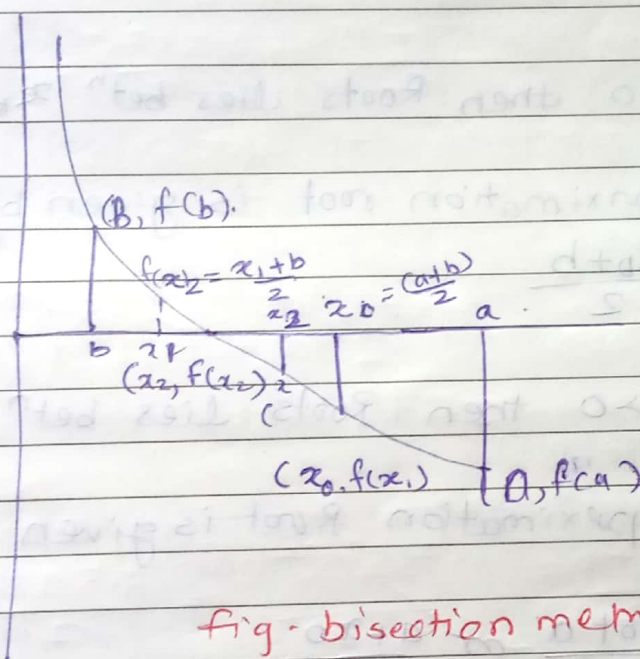 (B, f(b).
f(x)₂ = x₁+b/2
x₂ x₀ = (a+b)/2 a
b
(x₂, f(x₂)
(
(x₀, f(x₁) A, f(a)
fig - bisection